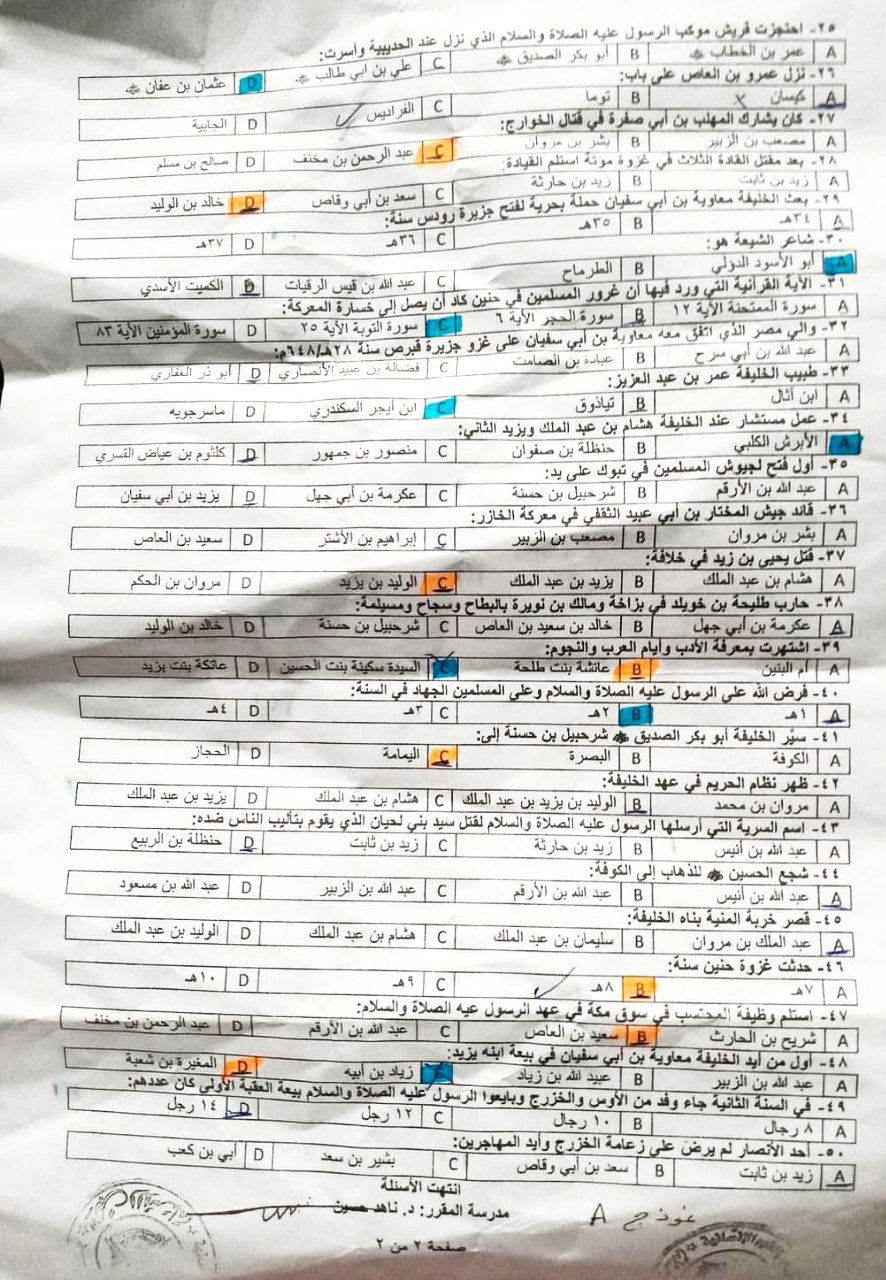 ٢٥- احتجزت قريش موكب الرسول عليه الصلاة والسلام الذي نزل عند الحديبية وأسرت:
A عمر بن الخطاب B أبو بكر الصديق C علي بن أبي طالب D عثمان بن عفان
٢٦- نزل عمرو بن العاص على باب:
A كيسان B توما C الفراديس D الجابية
٢٧- كان يشارك المهلب بن أبي صفرة في قتال الخوارج:
A مصعب بن الزبير B بشر بن مروان C عبد الرحمن بن مخنف D صالح بن مسلم
٢٨- بعد مقتل القادة الثلاث في غزوة مؤتة استلم القيادة:
A زيد بن ثابت B زيد بن حارثة C سعد بن أبي وقاص D خالد بن الوليد
٢٩- بعث الخليفة معاوية بن أبي سفيان حملة بحرية لفتح جزيرة رودس سنة:
A ٣٤هـ B ٣٥هـ C ٣٦هـ D ٣٧هـ
٣٠- شاعر الشيعة هو:
A أبو الأسود الدؤلي B الطرماح C عبد الله بن قيس الرقيات D الكميت الأسدي
٣١- الآية القرآنية التي ورد فيها أن غرور المسلمين في حنين كاد أن يصل إلى خسارة المعركة:
A سورة الممتحنة الآية ١٢ B سورة الحجر الآية ٦ C سورة التوبة الآية ٢٥ D سورة المؤمنين الآية ٨٣
٣٢- والي مصر الذي اتفق معه معاوية بن أبي سفيان على غزو جزيرة قبرص سنة ٢٨هـ/٦٤٨م:
A عبد الله بن أبي سرح B عباده بن الصامت C فضالة بن عبيد الأنصاري D أبو ذر الغفاري
٣٣- طبيب الخليفة عمر بن عبد العزيز:
A ابن أثال B تياذوق C ابن أبجر السكندري D ماسرجويه
٣٤- عمل مستشار عند الخليفة هشام بن عبد الملك ويزيد الثاني:
A الأبرش الكلبي B حنظلة بن صفوان C منصور بن جمهور D كلثوم بن عياض القسري
٣٥- أول فتح لجيوش المسلمين في تبوك على يد:
A عبد الله بن الأرقم B شرحبيل بن حسنة C عكرمة بن أبي جهل D يزيد بن أبي سفيان
٣٦- قائد جيش المختار بن أبي عبيد الثقفي في معركة الخازر:
A بشر بن مروان B مصعب بن الزبير C إبراهيم بن الأشتر D سعيد بن العاص
٣٧- قتل يحيى بن زيد في خلافة:
A هشام بن عبد الملك B يزيد بن عبد الملك C الوليد بن يزيد D مروان بن الحكم
٣٨- حارب طليحة بن خويلد في بزاخة ومالك بن نويرة بالبطاح وسجاح ومسيلمة:
A عكرمة بن أبي جهل B خالد بن سعيد بن العاص C شرحبيل بن حسنة D خالد بن الوليد
٣٩- اشتهرت بمعرفة الأدب وأيام العرب والنجوم:
A أم البنين B عائشة بنت طلحة C السيدة سكينة بنت الحسين D عاتكة بنت يزيد
٤٠- فرض الله على الرسول عليه الصلاة والسلام وعلى المسلمين الجهاد في السنة:
A ١هـ B ٢هـ C ٣هـ D ٤هـ
٤١- سيَّر الخليفة أبو بكر الصديق شرحبيل بن حسنة إلى:
A الكوفة B البصرة C اليمامة D الحجاز
٤٢- ظهر نظام الحريم في عهد الخليفة:
A مروان بن محمد B الوليد بن يزيد بن عبد الملك C هشام بن عبد الملك D يزيد بن عبد الملك
٤٣- اسم السرية التي أرسلها الرسول عليه الصلاة والسلام لقتل سيد بني لحيان الذي يقوم بتأليب الناس ضده:
A عبد الله بن أنيس B زيد بن حارثة C زيد بن ثابت D حنظلة بن الربيع
٤٤- شجع الحسين للذهاب إلى الكوفة:
A عبد الله بن أنيس B عبد الله بن الأرقم C عبد الله بن الزبير D عبد الله بن مسعود
٤٥- قصر خربة المنية بناه الخليفة:
A عبد الملك بن مروان B سليمان بن عبد الملك C هشام بن عبد الملك D الوليد بن عبد الملك
٤٦- حدثت غزوة حنين سنة:
A ٧هـ B ٨هـ C ٩هـ D ١٠هـ
٤٧- استلم وظيفة المحتسب في سوق مكة في عهد الرسول عيه الصلاة والسلام:
A شريح بن الحارث B سعيد بن العاص C عبد الله بن الأرقم D عبد الرحمن بن مخنف
٤٨- أول من أيد الخليفة معاوية بن أبي سفيان في بيعة ابنه يزيد:
A عبد الله بن الزبير B عبيد الله بن زياد C زياد بن أبيه D المغيرة بن شعبة
٤٩- في السنة الثانية جاء وفد من الأوس والخزرج وبايعوا الرسول عليه الصلاة والسلام بيعة العقبة الأولى كان عددهم:
A ٨ رجال B ١٠ رجال C ١٢ رجل D ١٤ رجل
٥٠- أحد الأنصار لم يرضَ على زعامة الخزرج وأيد المهاجرين:
A زيد بن ثابت B سعد بن أبي وقاص C بشير بن سعد D أبي بن كعب
انتهت الأسئلة
مدرسة المقرر: د. ناهد حسين
نموذج A
صفحة ٢ من ٢